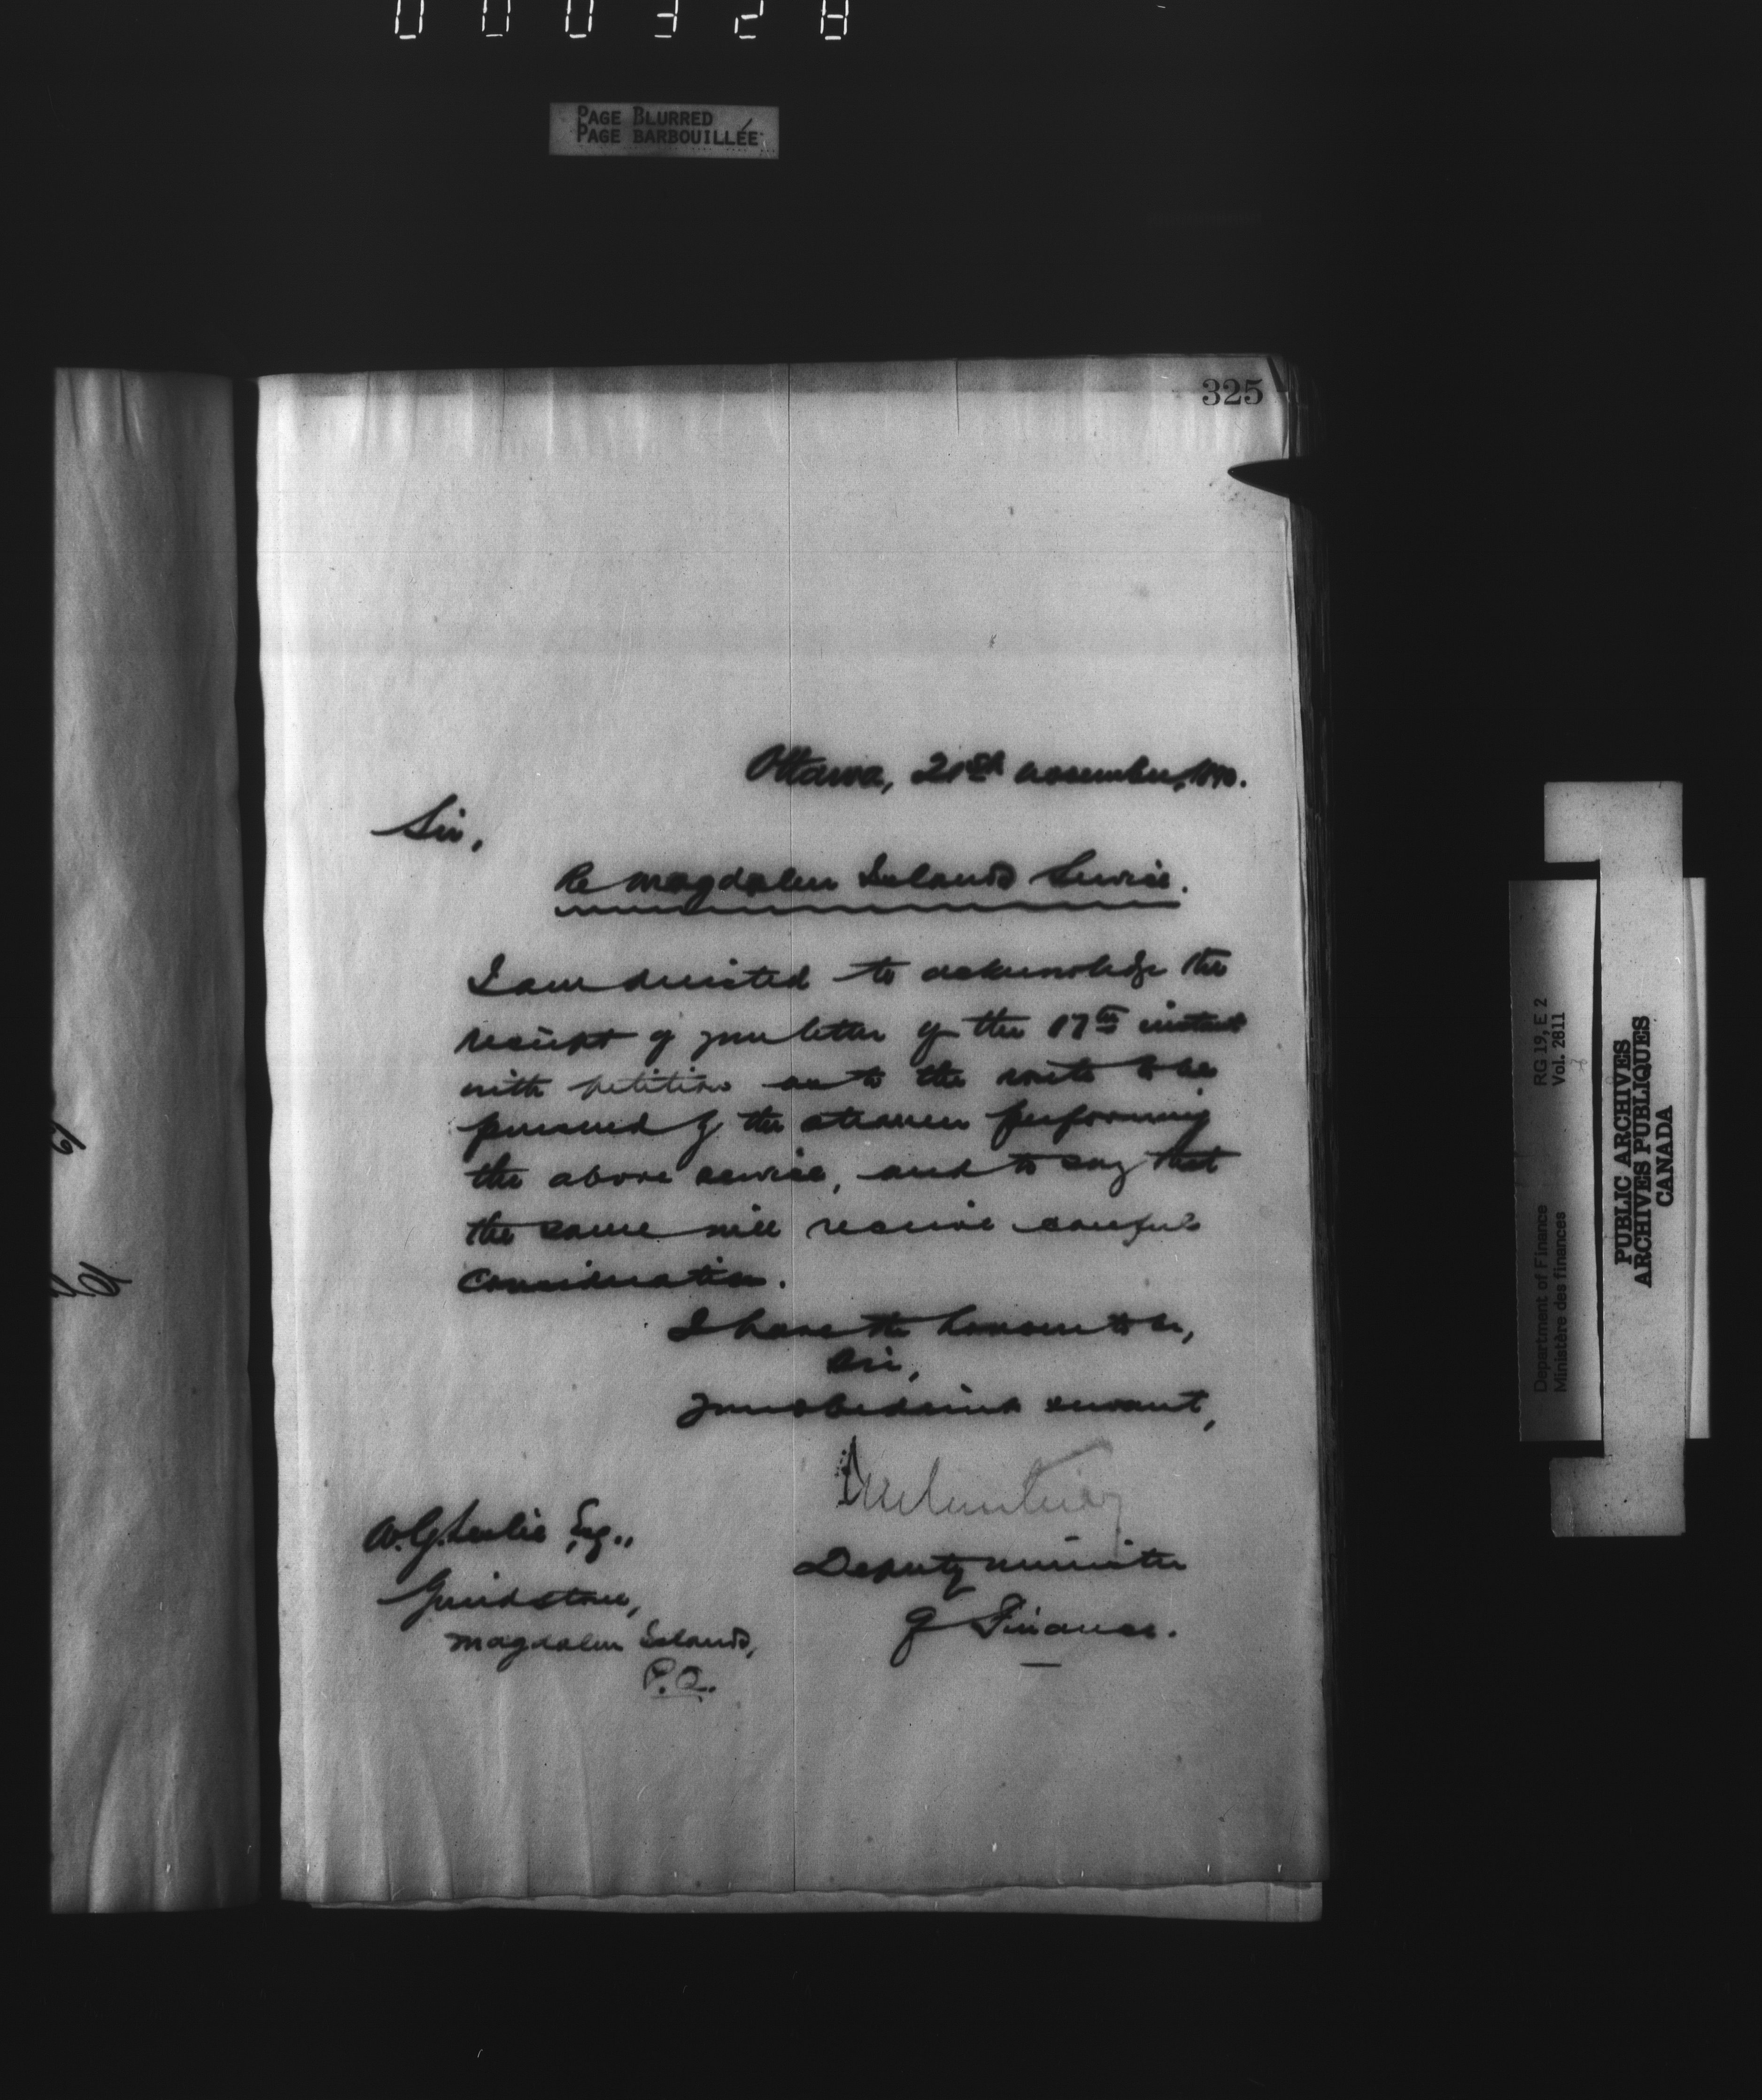 000328
PAGE BLURRED
PAGE BARBOUILLÉE
325
Ottawa, 21st November, 1890.
Sir,
Re Magdalen Islands Service.
I am directed to acknowledge the
receipt of your letter of the 17th instant
with petition as to the route to be
pursued by the steamer performing
the above service, and to say that
the same will receive careful
consideration.
I have the honour to be,
Sir,
Your obedient servant,
Deputy Minister
of Finance.
W. G. Leslie Esq.,
Grindstone,
Magdalen Islands,
P.Q.
Department of Finance RG 19, E 2
Ministère des finances Vol. 2811
PUBLIC ARCHIVES
ARCHIVES PUBLIQUES
CANADA